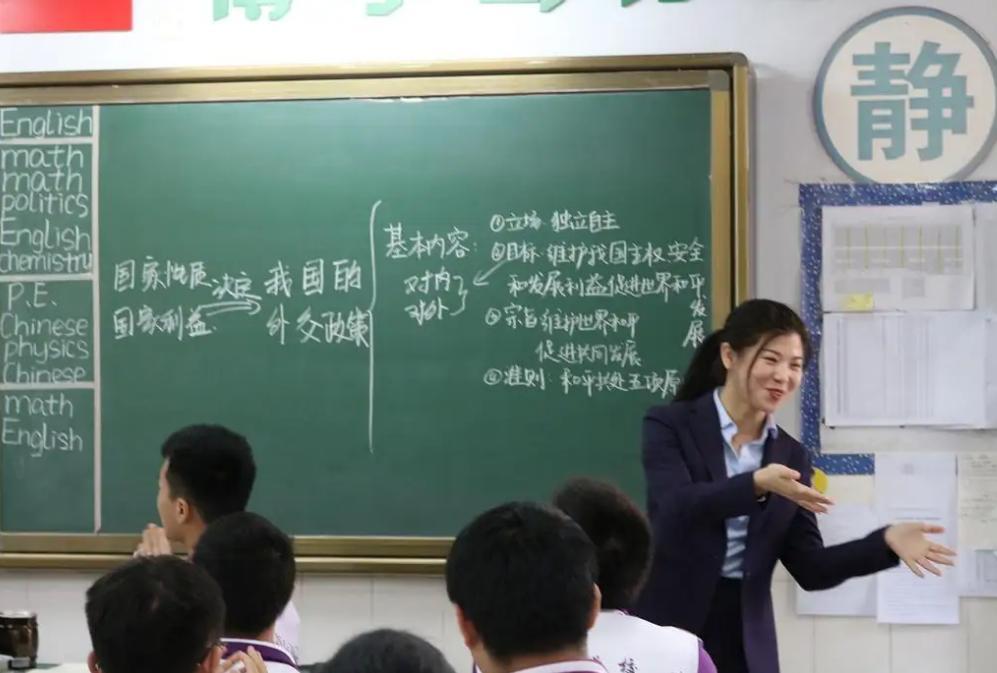 English
math
math
politics
English
chemistry
P.E.
Chinese
physics
Chinese
math
English
国家性质 决定 我国的
国家利益 外交政策
基本内容:
对内
对外
①立场:独立自主
②目标:维护我国主权,安全
和发展利益,促进世界和平
发展
③宗旨:维护世界和平
促进共同发展
④准则:和平共处五项原
静
校